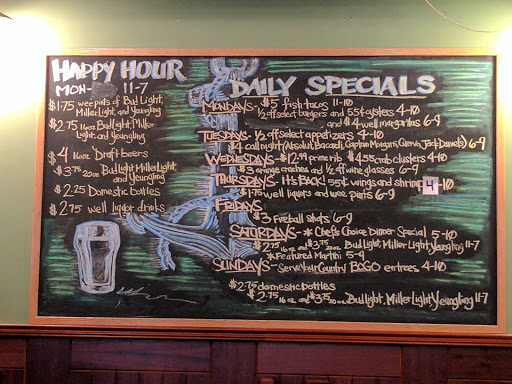 HAPPY HOUR
MON- 11-7
$1.75 wee pints of Bud Light,
Miller Light, and Youngling
$2.75 16oz Bud Light, Miller
Light, and Youngling
$4 16oz Draft beers
$3.75 20oz Bud Light Miller Light
and Youngling
$2.25 Domestic bottles
$2.75 well liquor drinks
DAILY SPECIALS
MONDAYS- $5 fish tacos 11-10
1/2 off select burgers and 55¢ oysters 4-10
and $4 well margaritas 6-9
TUESDAYS- 1/2 off select appetizers 4-10
$4 call night (Absolut, Bacardi, Captain Morgan, Cuervo, Jack Daniels) 6-9
WEDNESDAYS- $12.99 prime rib $4.55 crab clusters 4-10
$3 orange crushes and 1/2 off wine glasses 6-9
THURSDAYS- It's BACK! 55¢ wings and shrimp 4-10
$1.75 well liquors and wee pints 6-9
FRIDAYS
$3 Fireball Shots 6-9
SATURDAYS- * Chef's Choice Dinner Special 5-10
$2.75 16oz and $3.75 20oz Bud Light, Miller Light, Youngling 11-7
* Featured Martini 5-9
SUNDAYS- Serve Your Country BOGO entrees 4-10
$2.75 domestic bottles
$2.75 16oz and $3.75 20oz Bud Light, Miller Light, Youngling 11-7